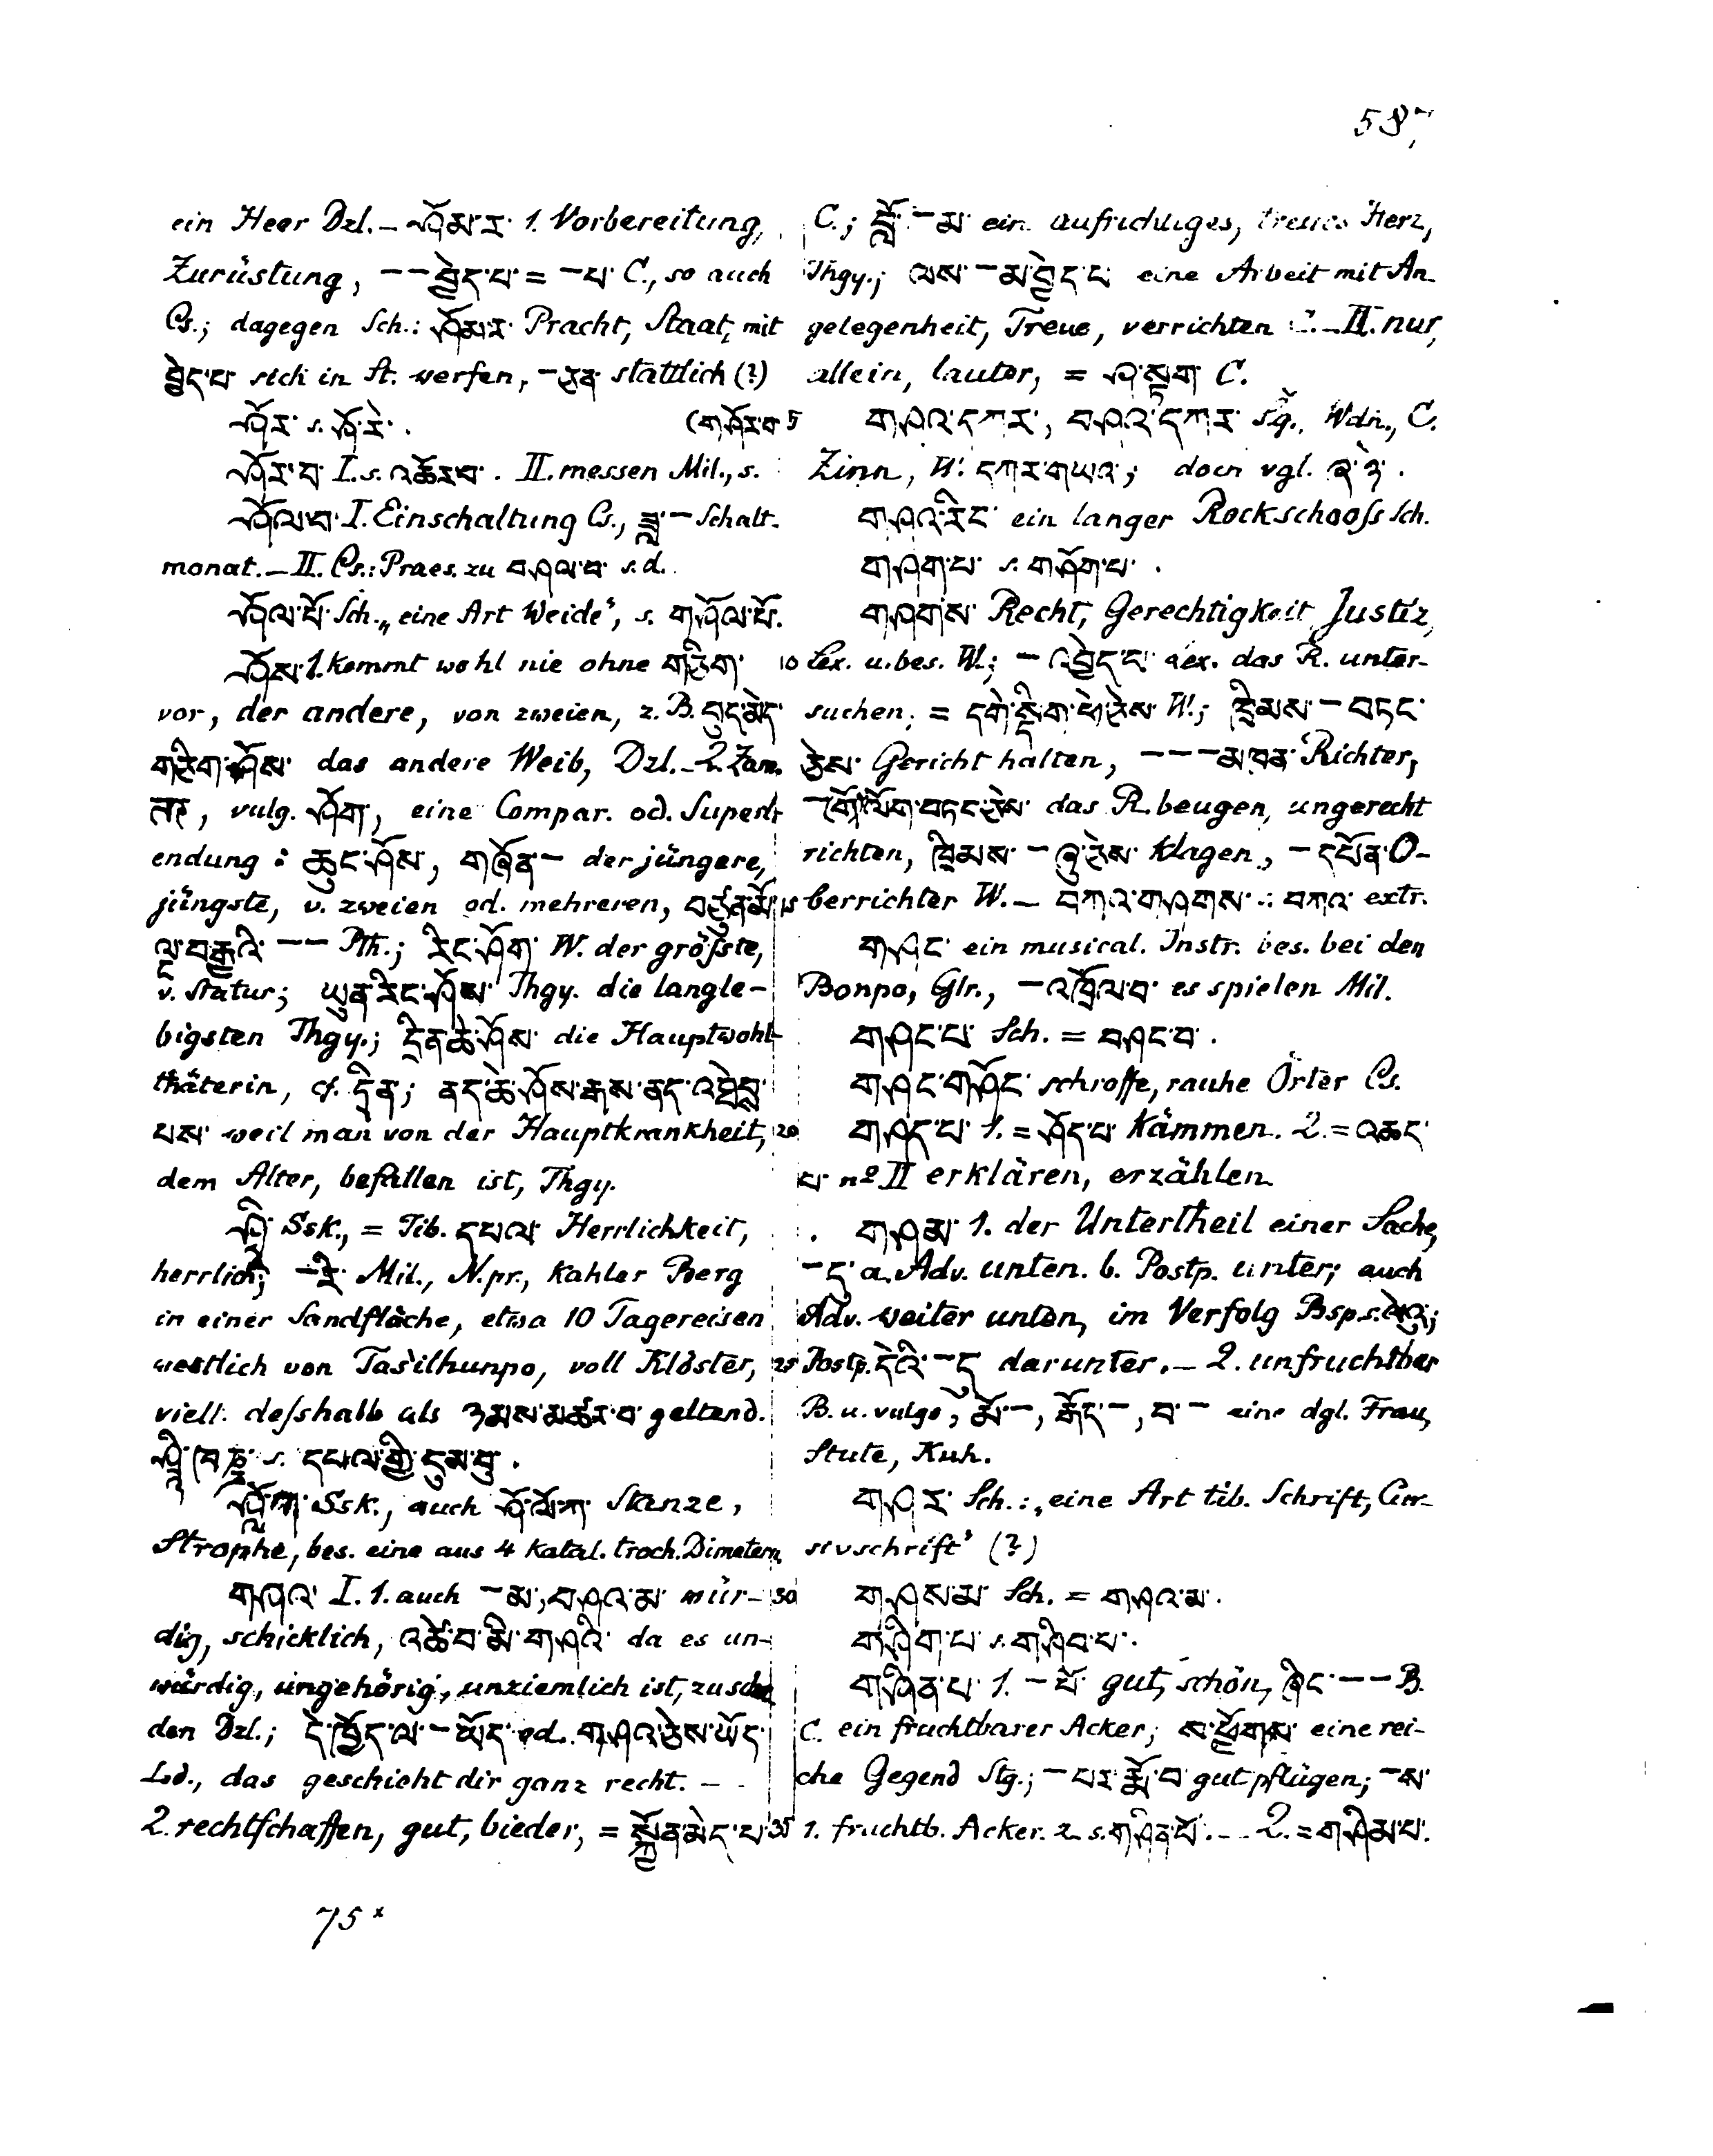 ein Heer Dzl. – ཤོམ་ར་ 1. Vorbereitung,
Zurüstung, – – བྱེད་པ་ = – པ་ C., so auch
Cs.; dagegen Sch.: ཤོམ་ར་ Pracht, Staat, mit
བྱེད་པ་ sich in St. werfen, – ཅན་ stattlich (?)
ཤོར་ s. ཤོ་རེ་.
(གཤོར་བ་
ཤོར་བ་ I. s. འཆོར་བ་. II. messen Mil., s.
ཤོལ་བ་ I. Einschaltung Cs., ཟླ་ – Schalt-
monat. – II. Cs.: Praes. zu བཤལ་བ་ s. d.
ཤོལ་པོ་ Sch. „eine Art Weide", s. གཤོལ་པོ.
ཤོས་ 1. kommt wohl nie ohne གཅིག་
vor, der andere, von zweien, z. B. བུད་མེད་
གཅིག་ཤོས་ das andere Weib, Dzl. – 2. Zam.
vulg. ཤོག, eine Compar. od. Superl.
endung: ཆུང་ཤོས, གཞོན་ – der jüngere,
jüngste, v. zweien od. mehreren, བཙུན་མོ་
– – Pth.; རིང་ཤོག་ W. der größte,
v. Statur; ཡུན་རིང་ཤོས་ Thgy. die langle-
bigsten Thgy.; དྲིན་ཆེ་ཤོས་ die Hauptwohl-
thäterin, cf. དྲིན་; ནད་ཆེ་ཤོས་རྒས་ནད་
པས་ weil man von der Hauptkrankheit,
dem Alter, befallen ist, Thgy.
ཤྲི་ Ssk., = Tib. དཔལ་ Herrlichkeit,
herrlich; – རི་ Mil., N. pr., kahler Berg
in einer Sandfläche, etwa 10 Tagereisen
westlich von Tas̀ilhunpo, voll Klöster,
viell. desshalb als ཉམས་མཚར་བ་ geltend.
s. དཔལ་གྱི་དུམ་བུ་.
ཤློ་ཀ་ Ssk., auch ཤོ་ལོ་ཀ་ Stanze,
Strophe, bes. eine aus 4 katal. troch. Dimetern
གཤའ་ I. 1. auch – མ་, བཤའ་མ་ wür-
dig, schicklich, འཚེ་བ་མི་གཤའི་ da es un-
würdig, ungehörig, unziemlich ist, zu scha-
den Dzl.; དེ་ཁྱོད་ལ་ – ཡོད་ od. གཤའ་ཅེས་ཡོད་
Ld., das geschieht dir ganz recht. –
2. rechtschaffen, gut, bieder, = སྐྱོན་མེད་པ་
C.; བློ་ – མ་ ein aufrichtiges, treues Herz,
Thgy.; ལས་ – མ་བྱེད་པ་ eine Arbeit mit An-
gelegenheit, Treue, verrichten C. – II. nur,
allein, lauter, = ཤ་སྟག་ C.
གཤའ་དཀར་, བཤའ་དཀར་ Wdn., C.
Zinn, W. དཀར་གཡའ་; doch vgl. ཞ་ཉེ་.
གཤའ་རིང་ ein langer Rockschooss Sch.
གཤག་པ་ s. གཤོག་པ་.
གཤགས་ Recht, Gerechtigkeit, Justiz,
Lex. u. bes. W.; – འབྱེད་པ་ Lex. das R. unter-
suchen, = དགེ་སྡིག་ཕྱེ་ཅེས་ W.; ཁྲིམས་ – བཏང་
ཅེས་ Gericht halten, – – – མཁན་ Richter,
– གོ་ལོག་བཏང་ཅེས་ das R. beugen, ungerecht
richten, ཁྲིམས་ – ཞུ་ཅེས་ klagen, – དཔོན་ O-
berrichter W. – བཀའ་གཤགས་ : བཀའ་ extr.
གཤང་ ein musical. Instr. bes. bei den
Bonpo, Glr., – འཁྲོལ་བ་ es spielen Mil.
གཤང་པ་ Sch. = བཤང་བ་.
གཤང་གཤོང་ schroffe, rauhe Örter Cs.
གཤད་པ་ 1. = ཤོད་པ་ kämmen. 2. = འཆད་
པ་ nº II erklären, erzählen.
གཤམ་ 1. der Untertheil einer Sache,
– དུ་ a. Adv. unten. b. Postp. unter; auch
Adv. weiter unten, im Verfolg Bsp. s. ལེའུ;
Postp. དེའི་ – དུ darunter. – 2. unfruchtbar
B. u. vulgo, མོ་ –, རྒོད་ –, བ་ – eine dgl. Frau,
Stute, Kuh.
གཤར་ Sch.: „eine Art tib. Schrift, Cur-
sivschrift" (?)
གཤསམ་ Sch. = གཤའ་མ་.
གཤིག་པ་ s. གཤིབ་པ་.
གཤིན་པ་ 1. – པོ་ gut, schön, ཞིང་ – – B.
C. ein fruchtbarer Acker; ས་ཕྱོགས་ eine rei-
che Gegend Stg.; – པར་རྨོ་བ་ gut pflügen; – ས་
1. fruchtb. Acker. 2. s. གཤིན་པོ་. – 2. = གཤིམ་པ་.
75*